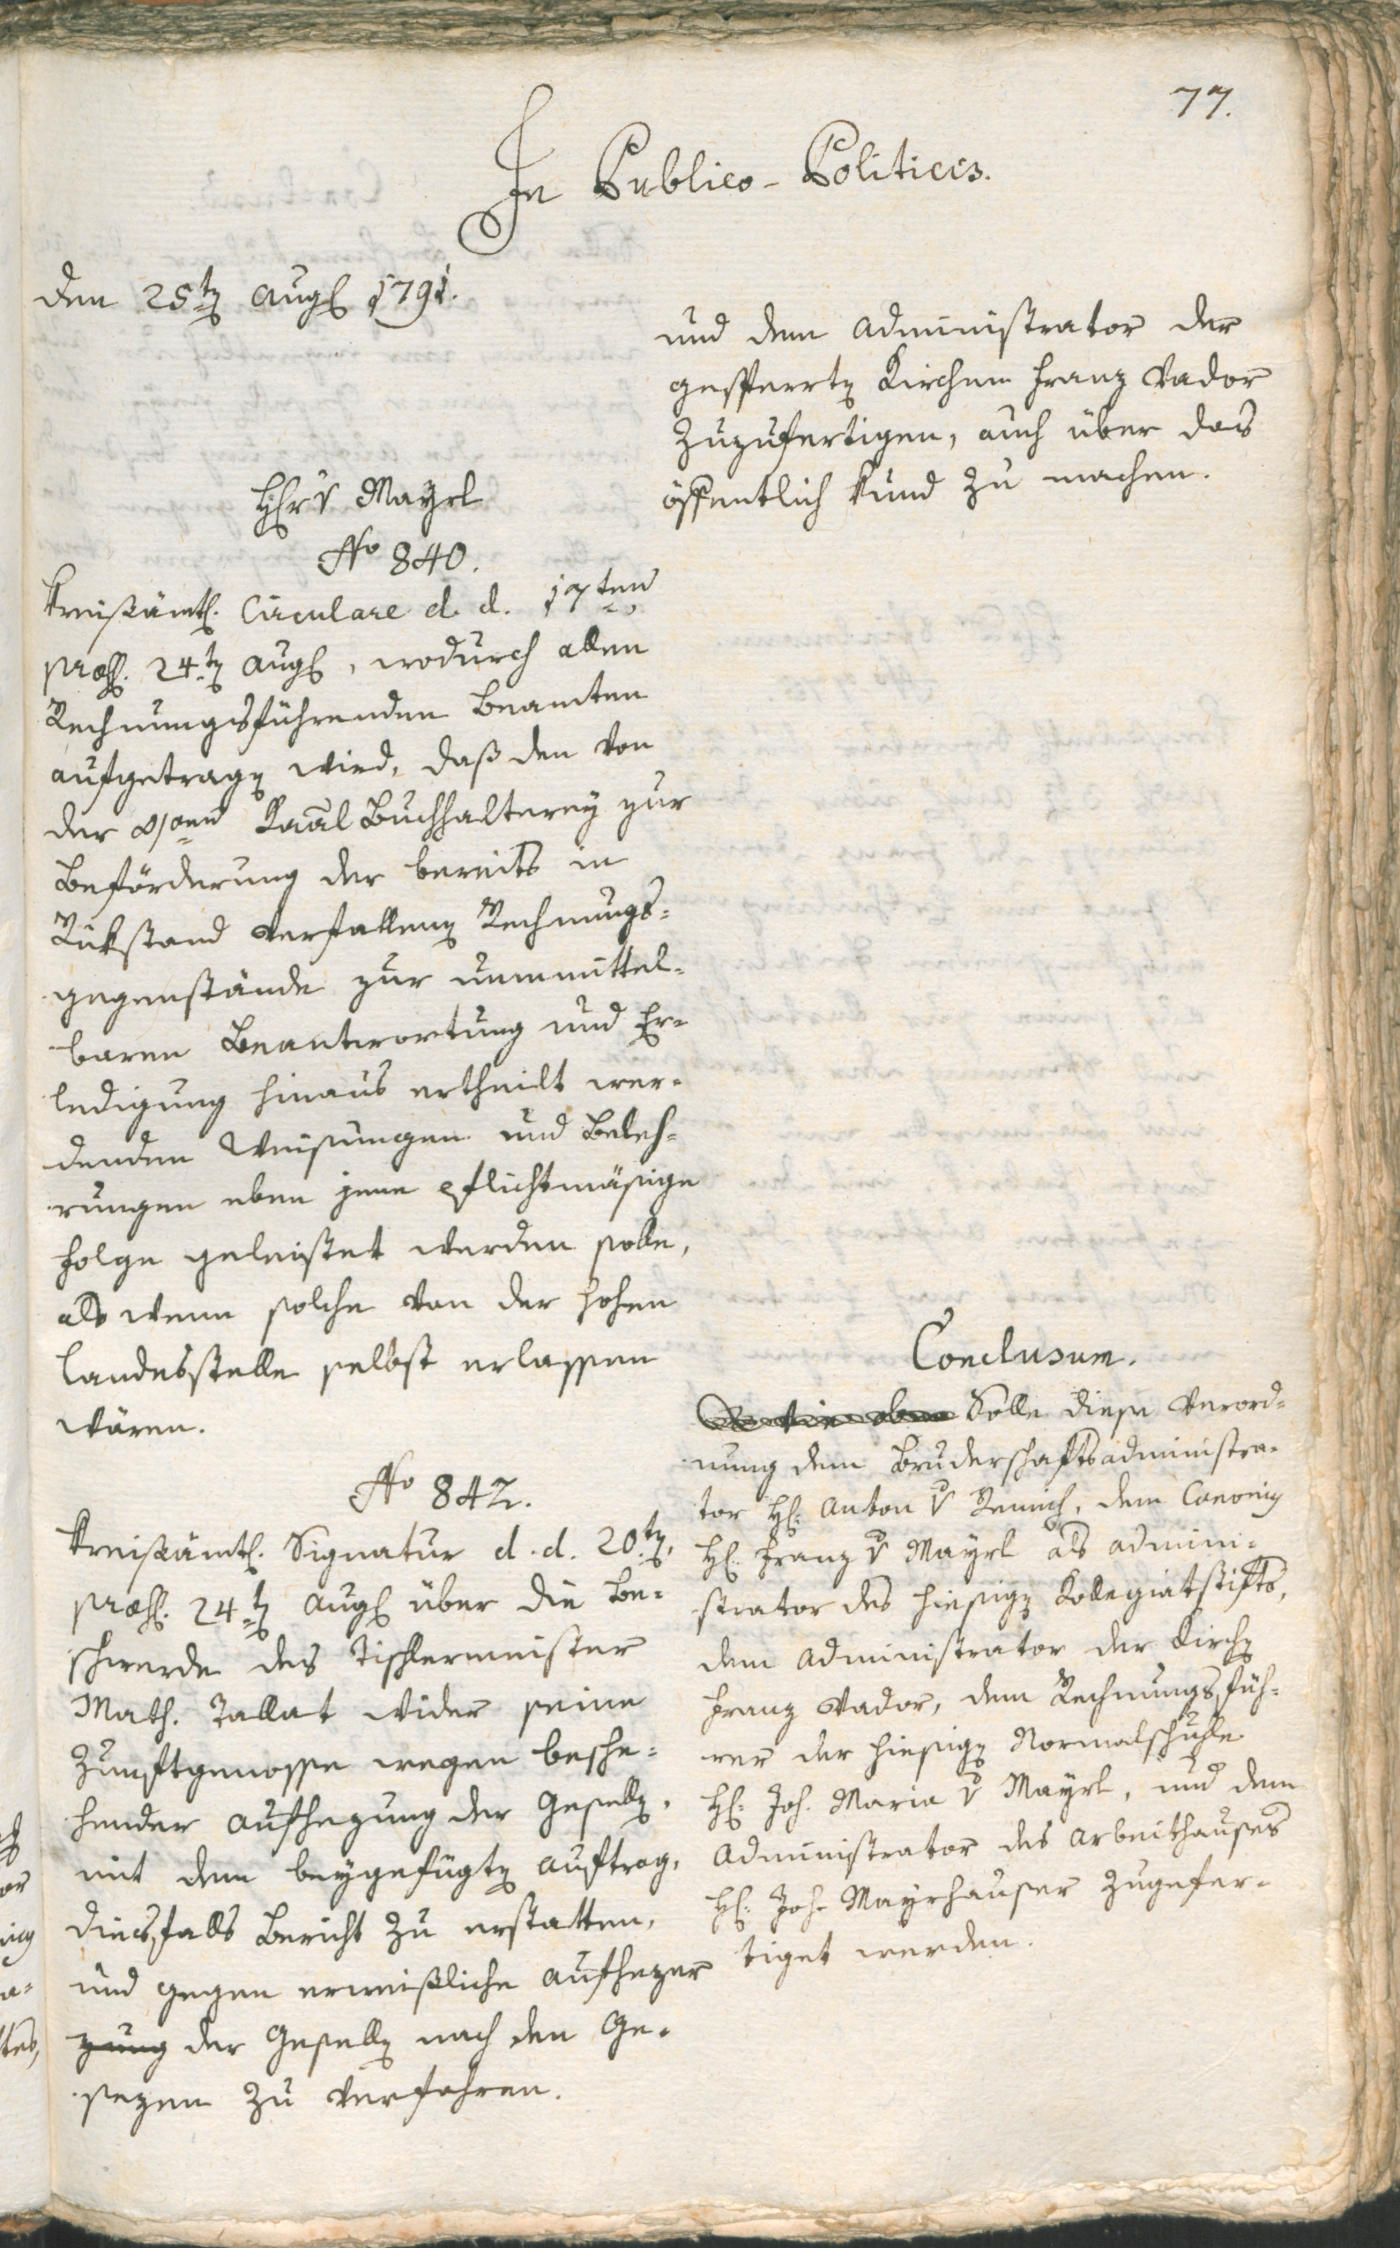 77.
In Publico-Politicis.
den 25tn Augl 1791.
H\Er v Mayrl
No 840.
Kreißämtl. Circulare d. d. 17ten
præs. 24tn Augl, wodurch allen
Rechnungsführenden Beamten
aufgetragn wird, daß den von
der Kaal Buchhalterey zur
Beförderung der bereits in
Rükstand verfallenn Rechnungs=
gegenstände zur unmittel=
baren Beantwortung und Er=
ledigung hinaus ertheilt wer=
denden Weisungen und Beleh=
rungen eben jene pflichtmäsige
Folge geleistet werden solle,
als wenn solche von der hohen
Landesstelle selbst erlassen
wären.
No 842.
Kreißämtl. Signatur d. d. 20tn,
præs. 24tn Augl über die Be=
schwerde des Tischlermeister
Math. Tallat wider seine
Zunftgenossen wegen besche=
hender Aufhezung der Geselln,
mit dem beygefügtn Auftrag,
diesfalls Bericht zu erstatten,
und gegen erweißliche Aufhezer
zung der Geselln nach den Ge=
sezen zu verfahren.
und dem Administrator der
gesperrtn Kirchen Franz Vador
zuzufertigen, auch über das
öffentlich kund zu machen.
Conclusum.
Solle diese Verord=
nung dem Bruderschaftsadministra=
tor H: Anton v Remich, dem Canonig
H: Franz v Mayrl als Admini=
strator des hiesign Kollegiatstifts,
dem Administrator der Kirchn
Franz Vador, dem Rechnungsfüh=
rer der hiesign Normalschule
H: Joh. Maria v Mayrl, und dem
Administrator des Arbeithauses
H: Joh. Mayrhauser zugefer=
tiget werden.